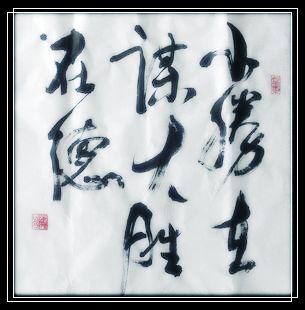 小勝在
谋大胜
在德